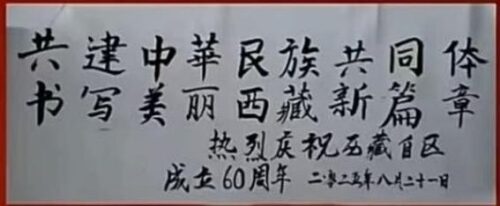 共建中華民族共同体
书写美丽西藏新篇章
热烈庆祝西藏自区
成立60周年 二〇二五年八月二十一日